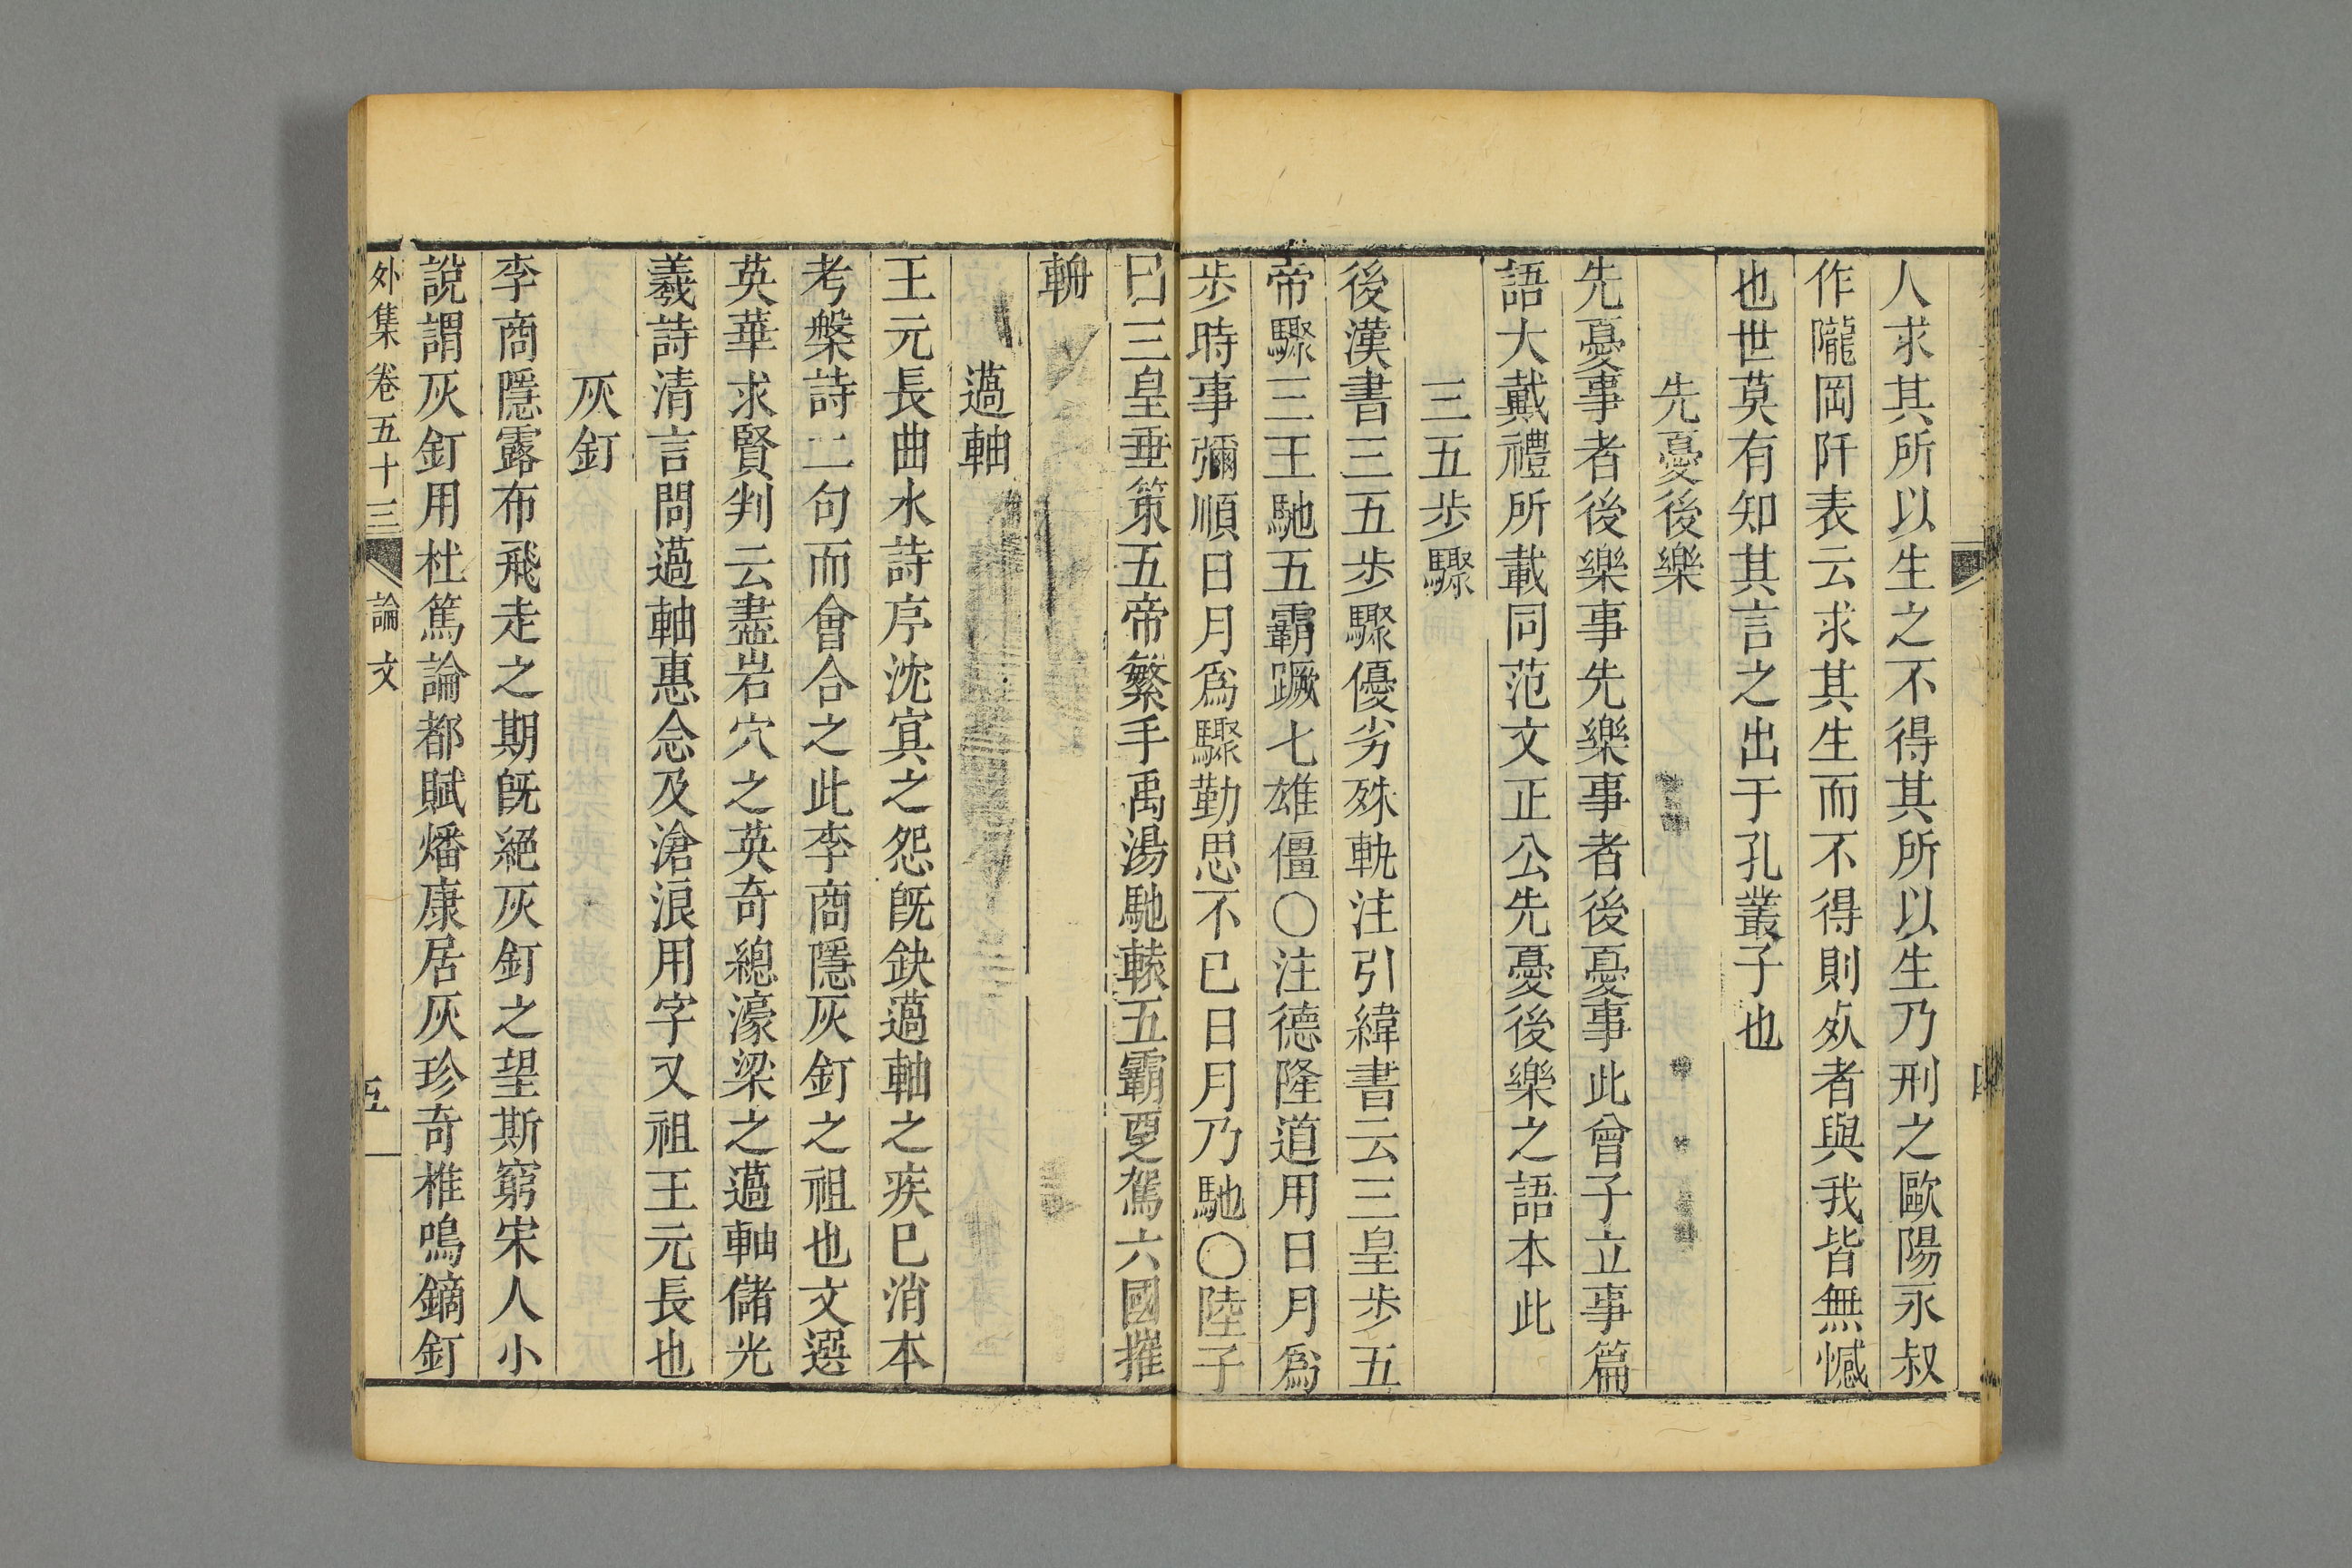 人求其所以生之不得其所以生乃刑之歐陽永叔
作隴岡阡表云求其生而不得則死者與我皆無憾
也世莫有知其言之出于孔叢子也
先憂後樂
先憂事者後樂事先樂事者後憂事此曾子立事篇
語大戴禮所載同范文正公先憂後樂之語本此
三五步驟
後漢書三五步驟優劣殊軌注引緯書云三皇步五
帝驟三王馳五霸蹶七雄僵〇注德隆道用日月爲
步時事彌順日月爲驟勤思不已日月乃馳〇陸子
曰三皇垂策五帝繁手禹湯馳轅五霸更駕六國摧
輈
薖軸
王元長曲水詩序沈寘之怨旣鈌薖軸之疾巳消本
考槃詩二句而會合之此李商隱灰釘之祖也文選
英華求賢判云盡岩穴之英奇總濠梁之薖軸儲光
羲詩清言問薖軸惠念及滄浪用字又祖王元長也
灰釘
李商隱露布飛走之期旣絕灰釘之望斯窮宋人小
說謂灰釘用杜篤論都賦燔康居灰珍奇椎鳴鏑釘
外集卷五十三
論文
五